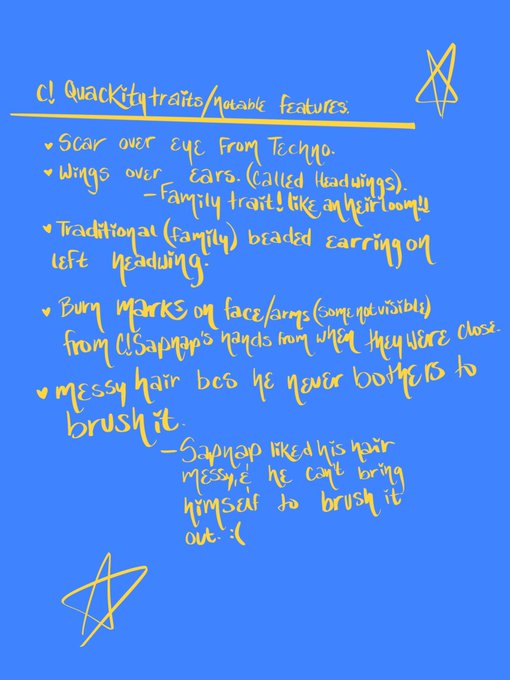 C! Quackity traits/notable features:
♥ Scar over eye from Techno.
♥ Wings over ears. (Called Headwings).
– Family trait! like an heirloom!!
♥ Traditional (family) beaded earring on
left headwing.
♥ Burn marks on face/arms (some not visible)
from C!Sapnap's hands from when they were close.
♥ messy hair bcs he never bothers to
brush it.
– Sapnap liked his hair
messy, & he can't bring
himself to brush it
out. :(